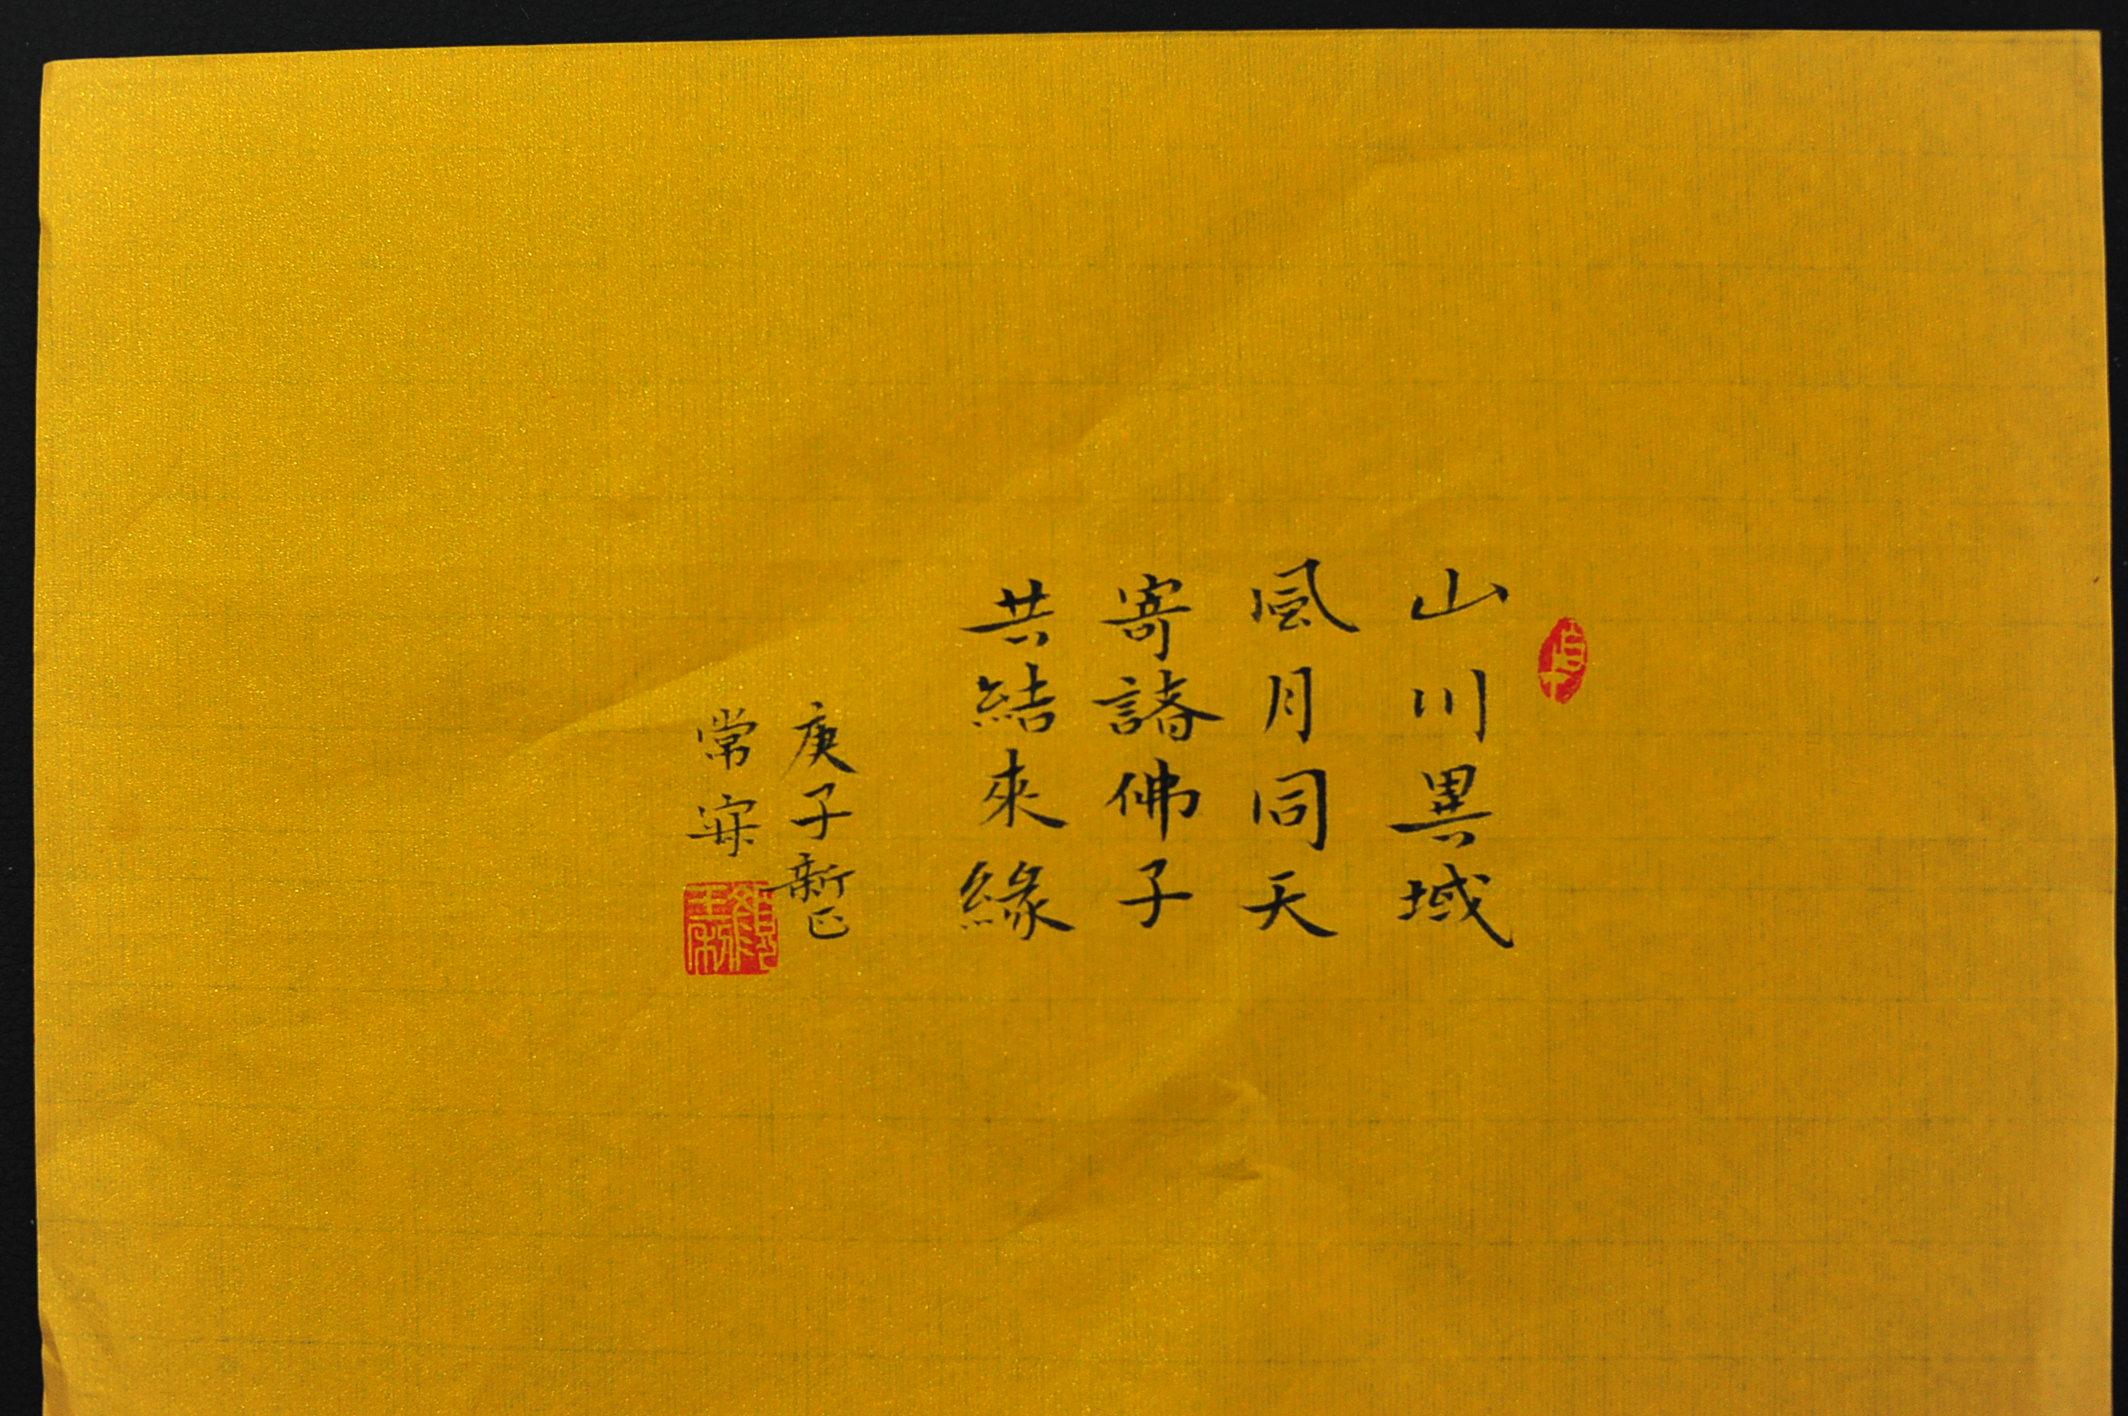 山川異域
風月同天
寄諸佛子
共結來緣
庚子新正
常寀